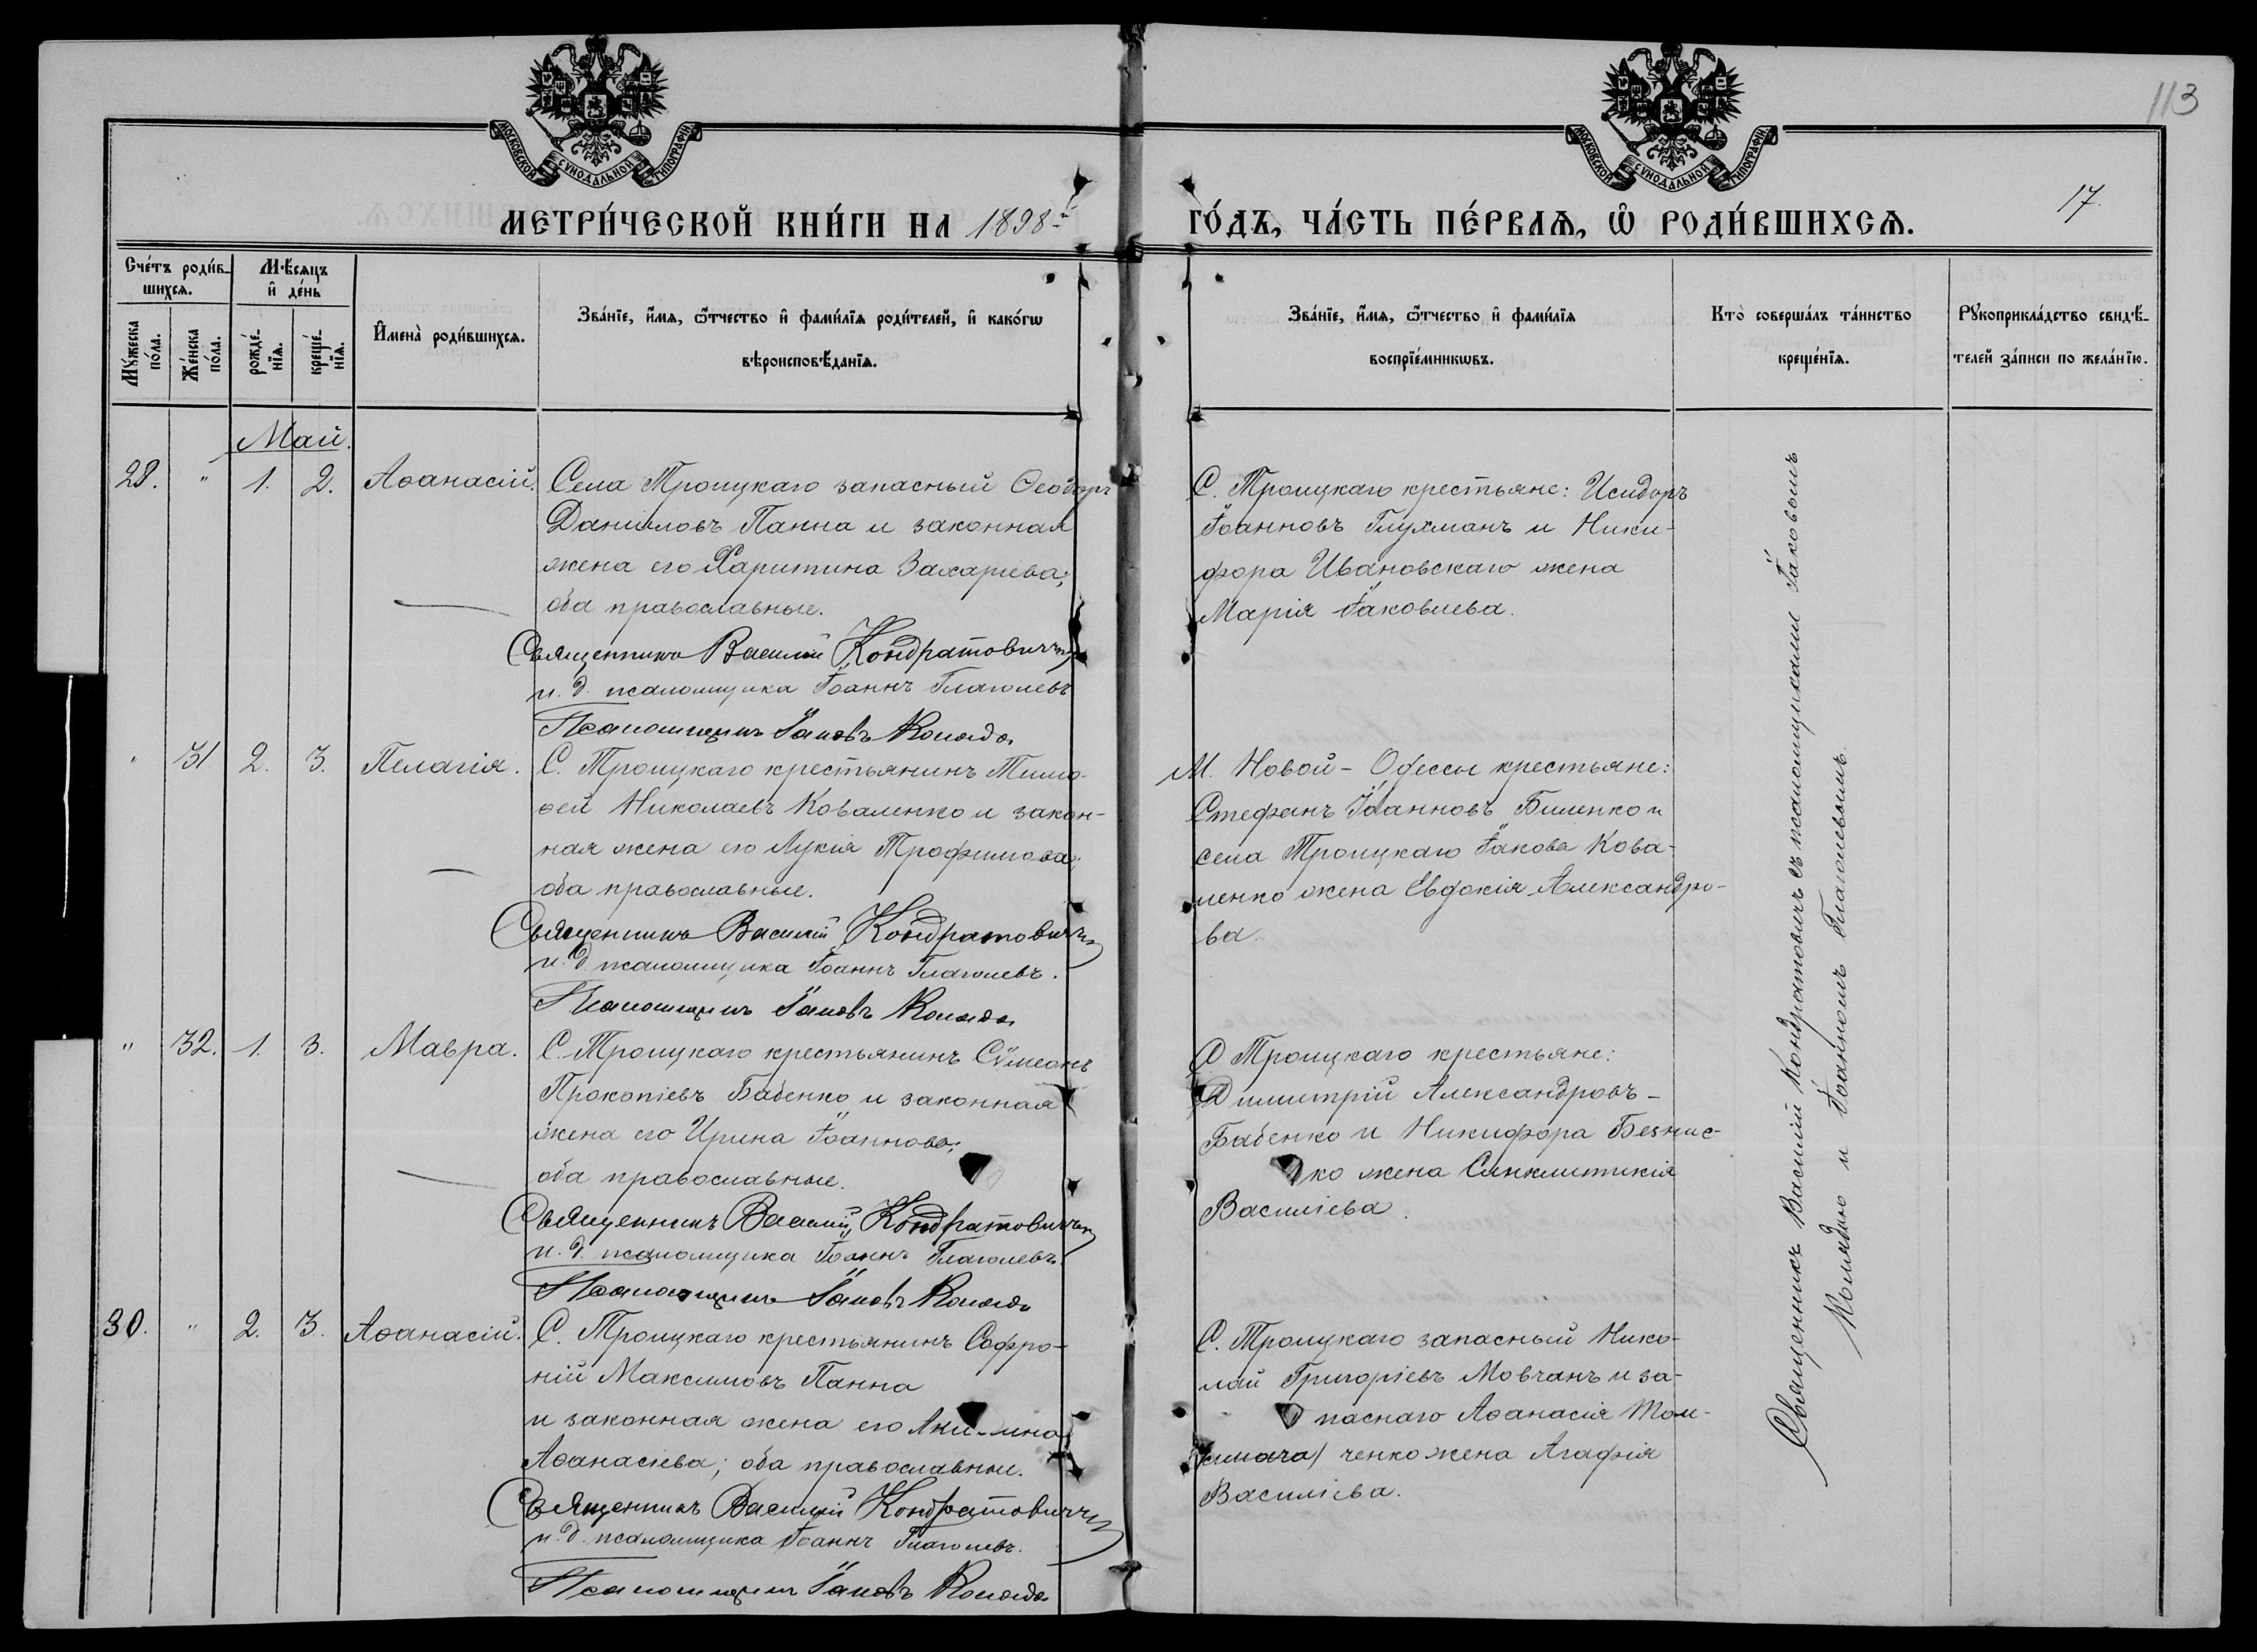 113
МОСКОВСКОЙ СУНОДАЛЬНОЙ ТИПОГРАФІИ
МОСКОВСКОЙ СУНОДАЛЬНОЙ ТИПОГРАФІИ
17.
МЕТРИ́ЧЕСКОЙ КНИ́ГИ НА 1898 ГО́ДЪ, ЧА́СТЬ ПЕ́РВАѦ, Ѡ РОДИ́ВШИХСѦ.
Сче́тъ роди́в-
шихсѧ.
Мѣ́сѧцъ
и҆ де́нь
Мꙋ́жеска
по́ла.
Же́нска
по́ла.
рожде́-
нїѧ.
креще́-
нїѧ.
И҆мена̀ роди́вшихсѧ.
Зва́нїе, и҆́мѧ, ѻ҆́тчество и҆ фами́лїѧ роди́телей, и҆ како́гѡ
вѣроисповѣ́данїѧ.
Зва́нїе, и҆́мѧ, ѻ҆́тчество и҆ фами́лїѧ
воспрїе́мникѡвъ.
Кто̀ соверша́лъ та́инство
креще́нїѧ.
Рꙋкоприкла́дство свидѣ́-
телей за́писи по жела́нїю.
Май.
28. " 1. 2. Аѳанасій.
Села Троицкаго запасный Ѳеодоръ
Даніиловъ Панна и законная
жена его Харитина Захаріева;
оба православные.
Священникъ Василій Кондратовичъ
и. д. псаломщика Іоаннъ Глаголевъ
Псаломщикъ Іаковъ Коляда
С. Троицкаго крестьяне: Исидоръ
Іоанновъ Глухманъ и Ники-
фора Ивановскаго жена
Марія Іаковлева.
" 31 2. 3. Пелагія.
С. Троицкаго крестьянинъ Тимо-
ѳей Николаевъ Коваленко и закон-
ная жена его Лукія Трофимова;
оба православные.
Священникъ Василій Кондратовичъ
и. д. псаломщика Іоаннъ Глаголевъ.
Псаломщикъ Іаковъ Коляда
М. Новой-Одессы крестьяне:
Стефанъ Іоанновъ Биленко и
села Троицкаго Іакова Кова-
ленко жена Евдокія Александро-
ва.
" 32. 1. 3. Мавра.
С. Троицкаго крестьянинъ Сѵмеонъ
Прокопіевъ Бабенко и законная
жена его Ирина Іоаннова;
оба православные.
Священникъ Василій Кондратовичъ
и. д. псаломщика Іоаннъ Глаголевъ.
Псаломщикъ Іаковъ Коляда
С Троицкаго крестьяне:
Димитрій Александровъ-
Бабенко и Никифора Безнис-
ко жена Синклитикія
Василіева.
30. " 2. 3. Аѳанасій.
С. Троицкаго крестьянинъ Софро-
ній Максимовъ Панна
и законная жена его Аки-лина
Аѳанасіева; оба православные.
Священникъ Василій Кондратовичъ
и. д. псаломщика Іоаннъ Глаголевъ.
Псаломщикъ Іаковъ Коляда
С. Троицкаго запасный Нико-
лай Григоріевъ Мовчанъ и за-
паснаго Аѳанасія Том-
ченко жена Агафія
Василіева.
Священникъ Василій Кондратовичъ съ псаломщиками Іаковомъ
Колядою и Іоанномъ Глаголевымъ.